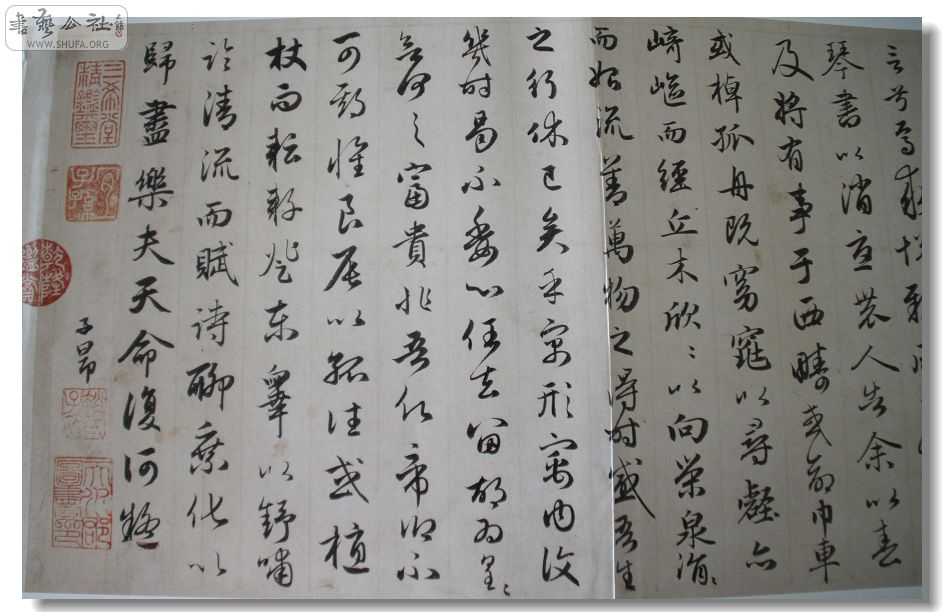 書藝公社
WWW.SHUFA.ORG
言兮焉求悅親
琴書以消憂農人告余以春
及將有事于西疇或命巾車
或棹孤舟既窈窕以尋壑亦
崎嶇而經丘木欣〻以向榮泉涓〻
而始流善萬物之得時感吾生
之行休已矣乎寓形宇內復
幾時曷不委心任去留胡為遑〻
欲何之富貴非吾願帝鄉不
可期懷良辰以孤往或植
杖而耘耔登東皋以舒嘯
臨清流而賦詩聊乘化以
歸盡樂夫天命復何疑
子昂
三希堂精鑑璽
宜子孫
乾隆鑑賞
趙氏子昂